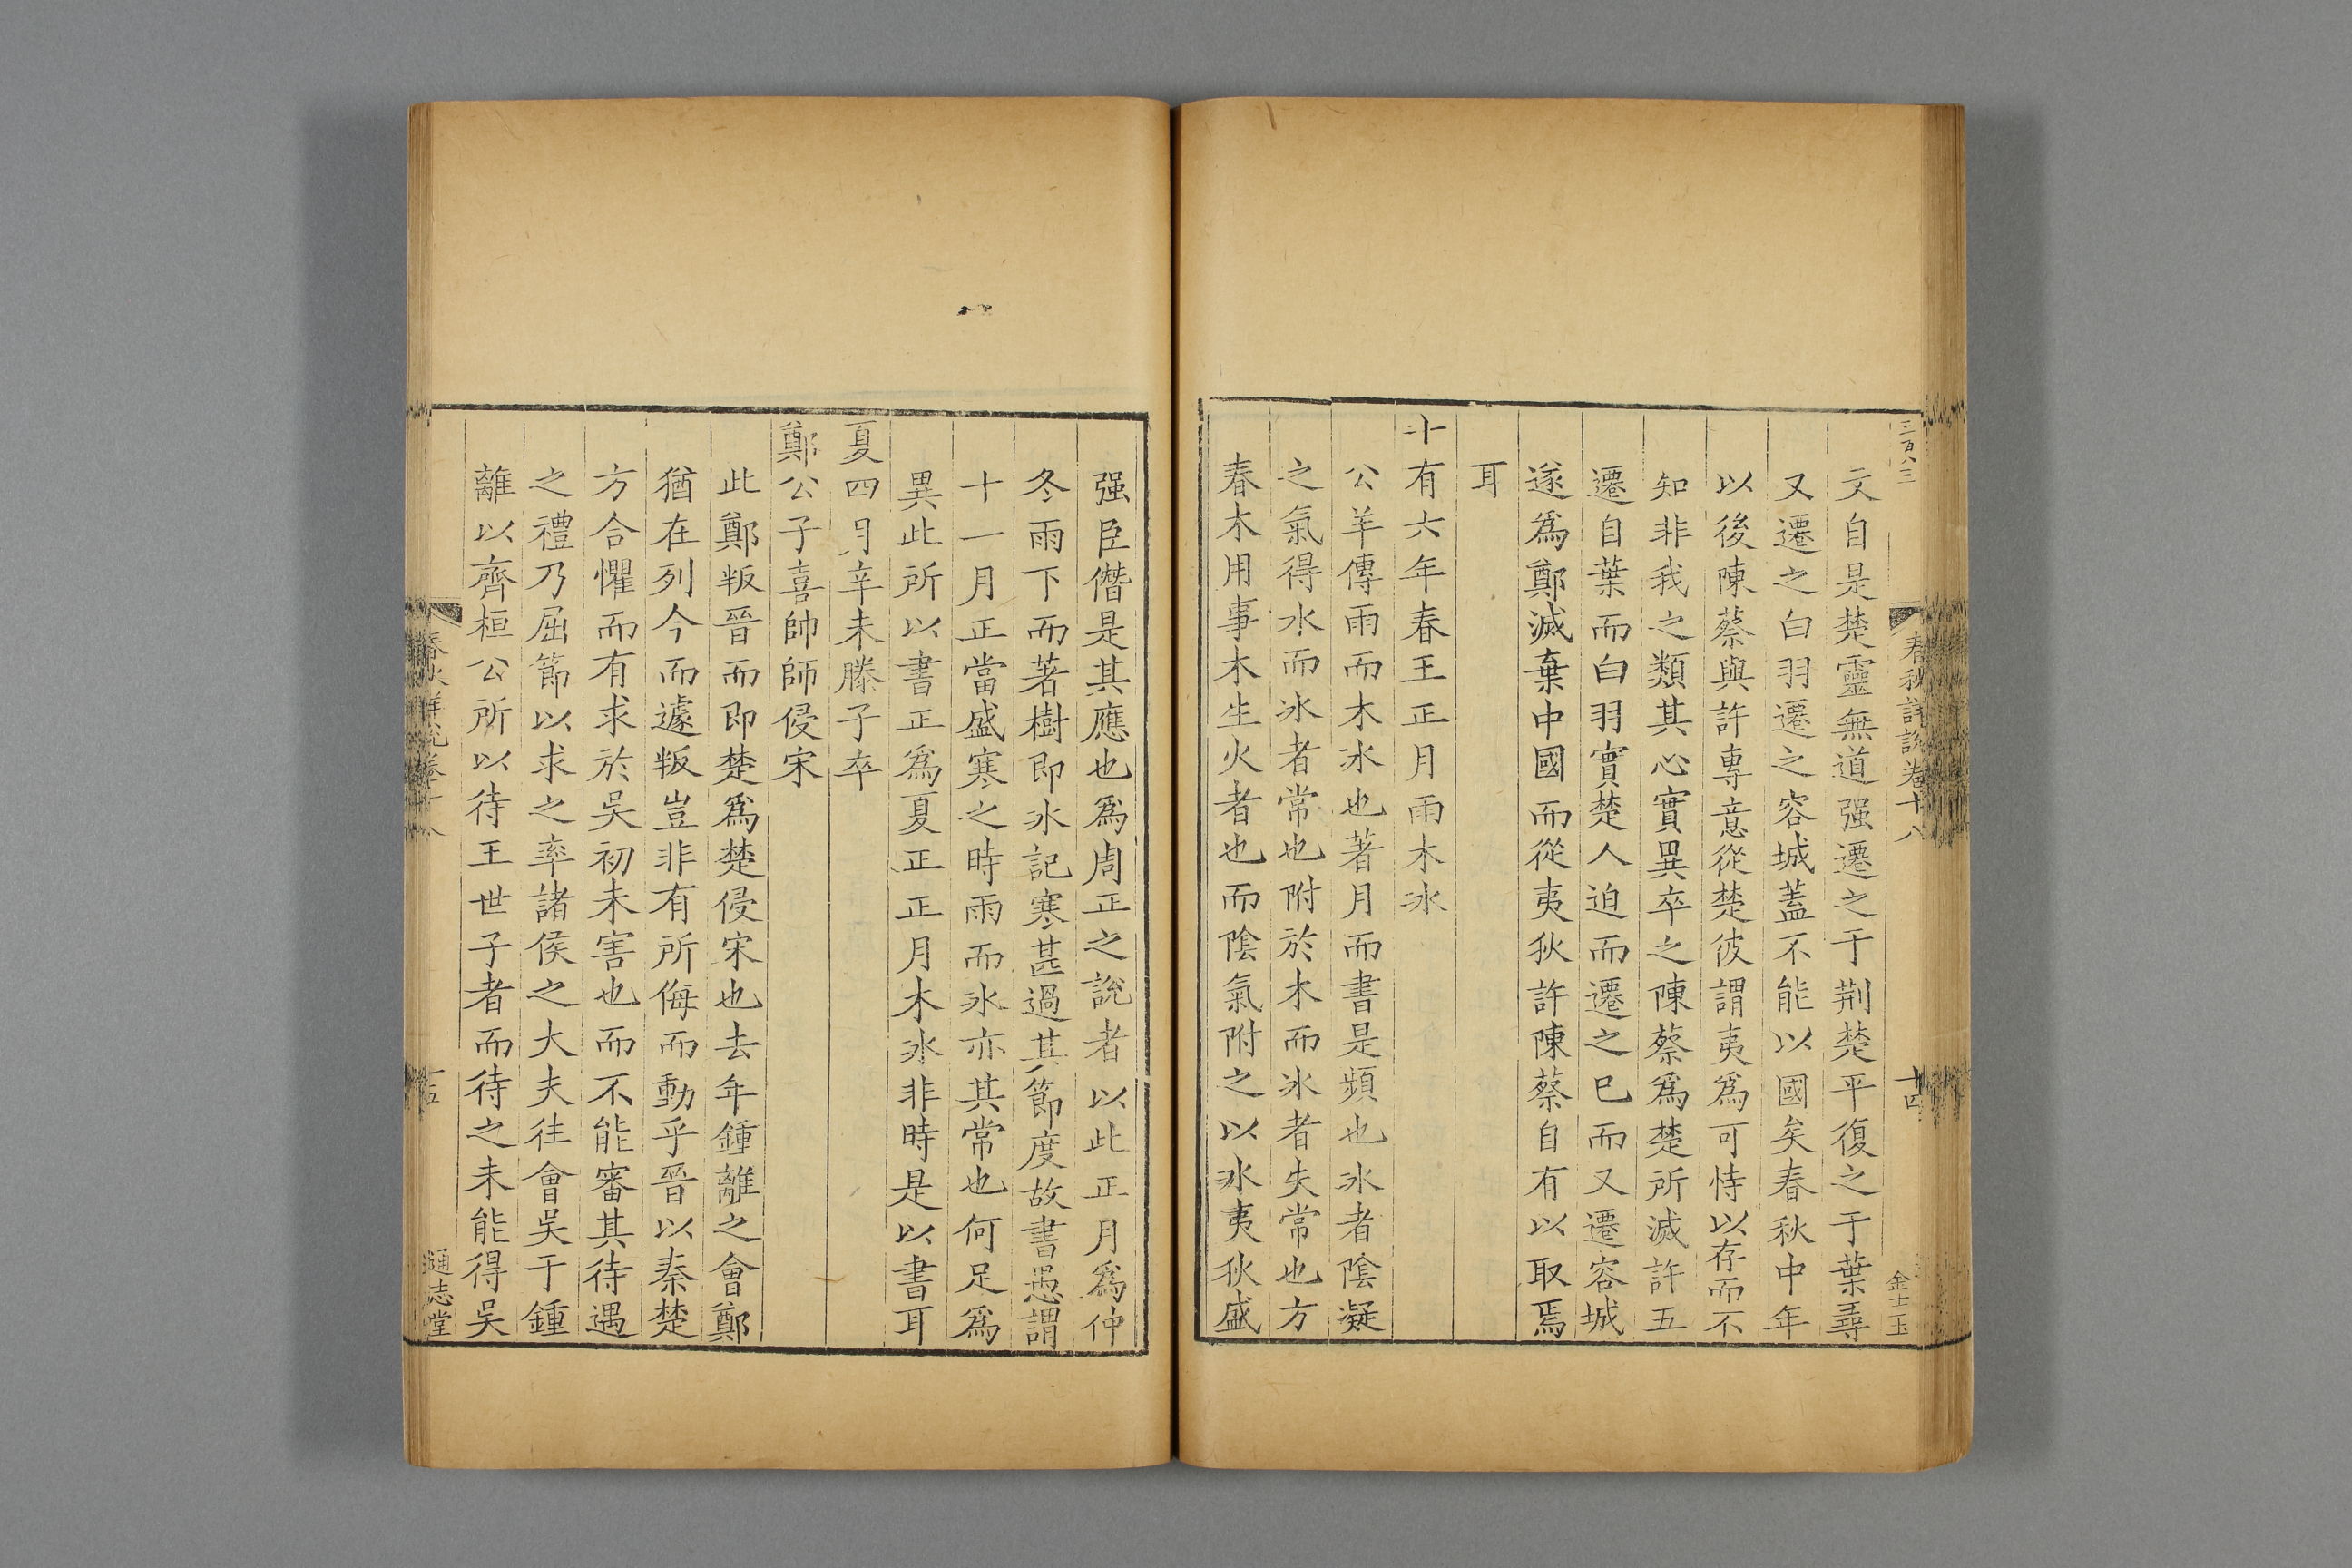 三百八三
春秋詳說卷十八
十四
金士玉
文自是楚靈無道强遷之于荆楚平復之于葉尋
又遷之白羽遷之容城蓋不能以國矣春秋中年
以後陳蔡與許專意從楚彼謂夷爲可恃以存而不
知非我之類其心實異卒之陳蔡爲楚所滅許五
遷自葉而白羽實楚人迫而遷之巳而又遷容城
遂爲鄭滅棄中國而從夷狄許陳蔡自有以取焉
耳
十有六年春王正月雨木冰
公羊傳雨而木冰也著月而書是頻也冰者陰凝
之氣得水而冰者常也附於木而冰者失常也方
春木用事木生火者也而陰氣附之以冰夷狄盛
强臣僭是其應也爲周正之說者以此正月爲仲
冬雨下而著樹即冰記寒甚過其節度故書愚謂
十一月正當盛寒之時雨而冰亦其常也何足爲
異此所以書正爲夏正正月木冰非時是以書耳
夏四月辛未滕子卒
鄭公子喜帥師侵宋
此鄭叛晉而即楚爲楚侵宋也去年鍾離之會鄭
猶在列今而遽叛豈非有所侮而動乎晉以秦楚
方合懼而有求於吳初未害也而不能審其待遇
之禮乃屈節以求之率諸侯之大夫往會吳于鍾
離以齊桓公所以待王世子者而待之未能得吳
春秋詳說卷十八
通志堂